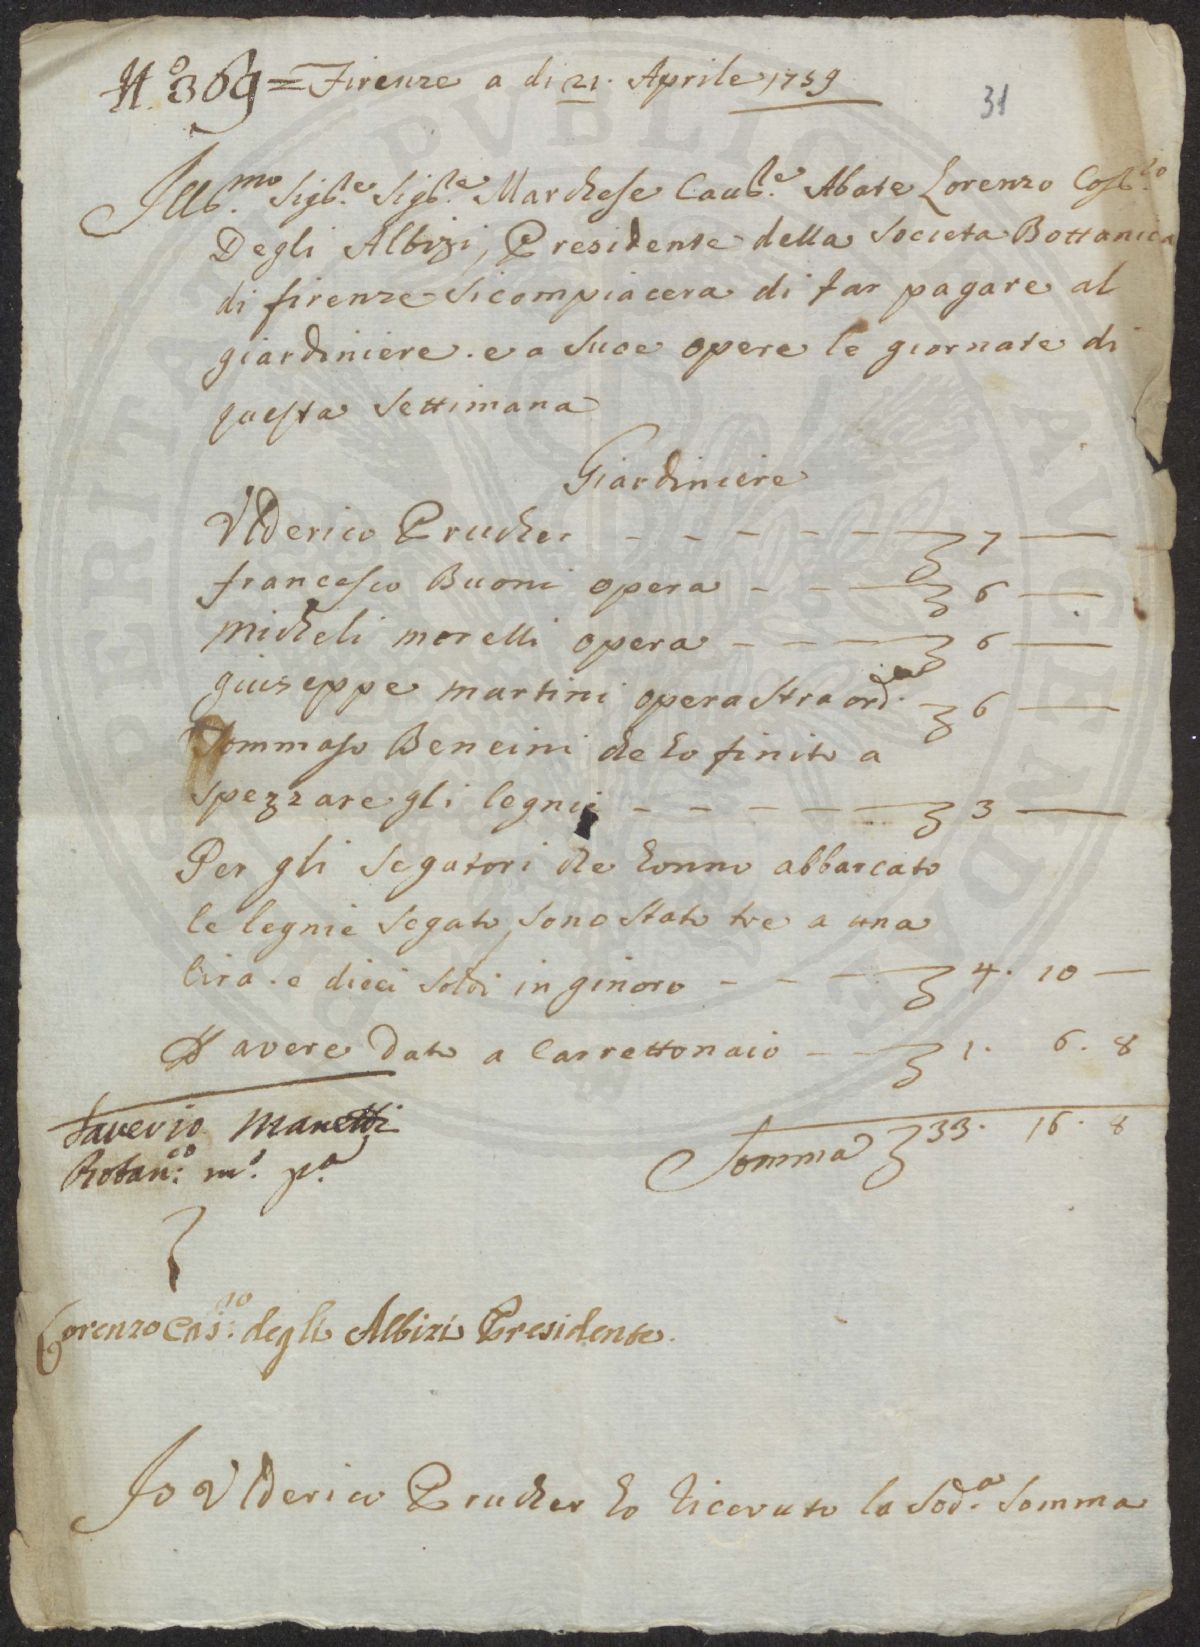 N.o 369 = Firenze a di 21. Aprile 1759
31
Ill.mo Sig.re Sig.re Marchese Cau.re Abate Lorenzo Cos.
Degli Albizi, Presidente della Societa Bottanica
di firenze si compiacera di far pagare al
giardiniere. e a suoe opere le giornate di
questa settimana
Giardiniere
Vlderico Prucher - - - - - 7 —
francesco Buoni opera - - 6 —
micheli morelli opera - - - 6 —
giuseppe martini opera straord. 6 —
Tommaso Bencini che ho finito a
spezzare gli legnie - - - - - 3 —
Per gli segatori che honno abbarcato
le legnie segato, sono stato tre a una
lira. e dieci soldi in ginoro - - - 4. 10 —
A avere dato a Carrettonaio - - 1. 6. 8
Saverio Manetti
Botan.co m.o p.a
Somma 33. 16. 8
Lorenzo Cos.o degli Albizi Presidente.
Io Vlderico Prucher ho ricevuto la sod.a somma